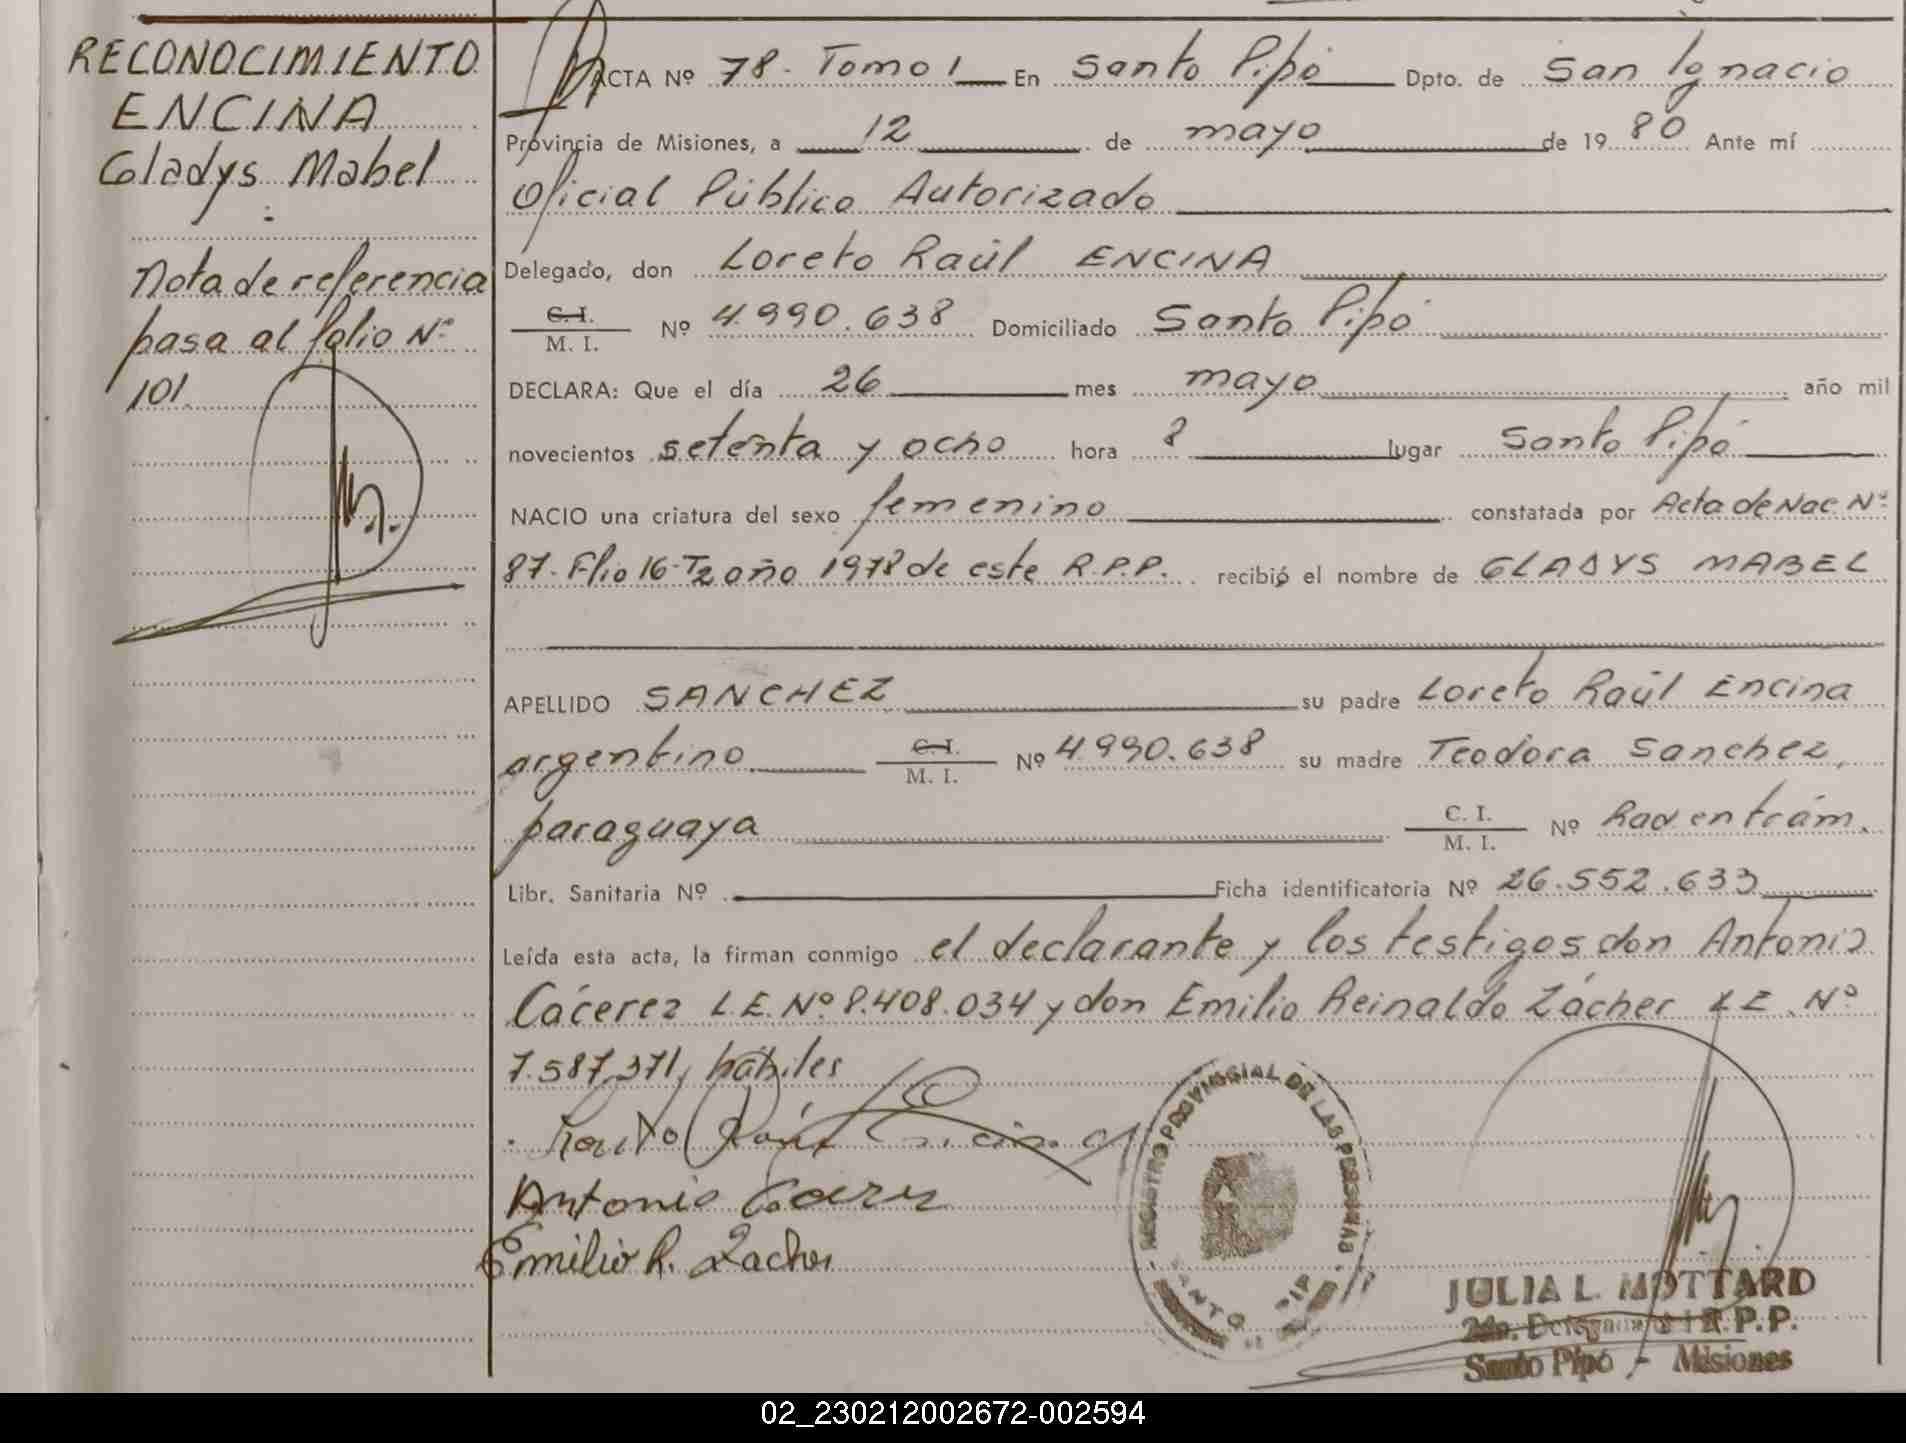 RECONOCIMIENTO
ENCINA
Gladys Mabel
Nota de referencia
pasa al folio Nº
101
ACTA Nº 78- Tomo I En Santo Pipó Dpto. de San Ignacio
Provincia de Misiones, a 12 de mayo de 19 80 Ante mí
Oficial Público Autorizado
Delegado, don Loreto Raúl ENCINA
C. I.
M. I. Nº 4.990.638 Domiciliado Santo Pipó
DECLARA: Que el día 26 mes mayo año mil
novecientos setenta y ocho hora 8 lugar Santo Pipó
NACIO una criatura del sexo femenino constatada por Acta de Nac. Nº
87- Flio 16- T2 año 1978 de este R.P.P. recibió el nombre de GLADYS MABEL
APELLIDO SANCHEZ su padre Loreto Raúl Encina
argentino C. I.
M. I. Nº 4.990.638 su madre Teodora Sanchez,
paraguaya C. I.
M. I. Nº Rad. en trám.
Libr. Sanitaria Nº Ficha identificatoria Nº 26.552.633
Leída esta acta, la firman conmigo el declarante y los testigos don Antonio
Cácerez L.E. Nº 8.408.034 y don Emilio Reinaldo Zácher L.E. Nº
7.587.371, hábiles
Antonio
Emilio R. Zacher
REGISTRO PROVINCIAL DE LAS PERSONAS
SANTO PIPO
JULIA L. MOTTARD
R.P.P.
Santo Pipó - Misiones
02_230212002672-002594